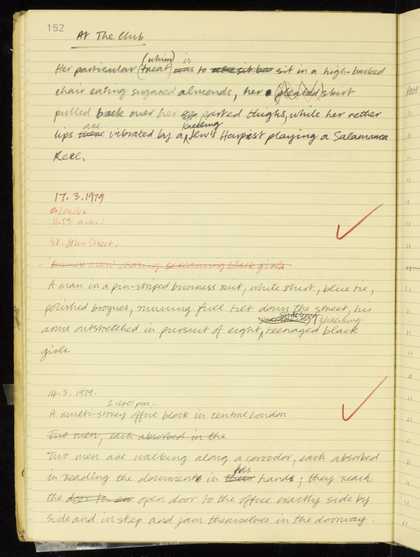 152
At The Club
(whim) is
Her particular (treat) was to sit in a high-backed
chair eating sugared almonds, her pleated skirt
pulled back over her parted thighs, while her nether
are kneeling
lips were vibrated by a Jews Harpist playing a Salamanca
Reel.
17.3.1979
London
St. John Street.
A man in a pin-striped business suit, white shirt, blue tie,
polished brogues, running full tilt down the street, his
arms outstretched in pursuit of eight, teenaged black
girls
14.3.1979.
A multi-storey office block in central London
Two men, each absorbed in the
Two men are walking along a corridor, each absorbed
his
in reading the documents in their hands; they reach
the open door to the office exactly side by
side and in step and jam themselves in the doorway.